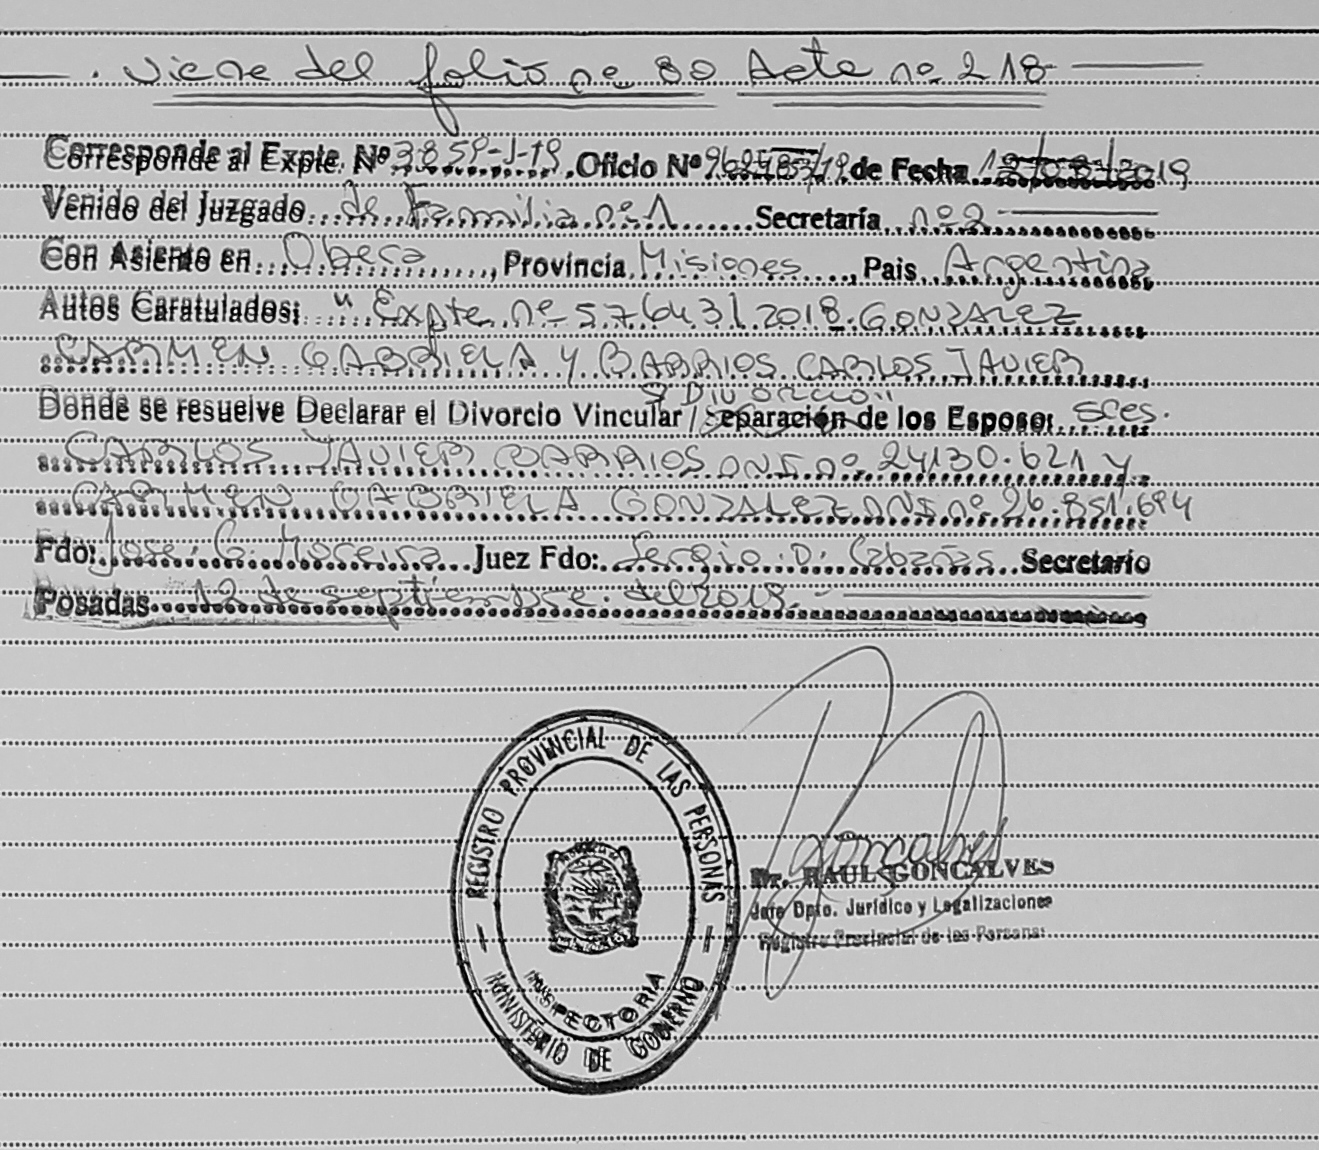 . Viene del folio nº 80 Acta nº 218
Corresponde al Expte. Nº 3859-J-19. Oficio Nº de Fecha /2019
Venido del Juzgado de Familia nº 1 Secretaría nº 2
Con Asiento en Obera, Provincia Misiones, Pais Argentina
Autos Caratulados: "Expte nº 57643/2018. GONZALEZ
CARMEN GABRIELA Y BARRIOS CARLOS JAVIER
S/ DIVORCIO"
Donde se resuelve Declarar el Divorcio Vincular / Separación de los Esposo: Sres.
CARLOS JAVIER BARRIOS DNI nº 24130.621 y
CARMEN GABRIELA GONZALEZ DNI nº 26.851.694
Fdo: Jose G. Moreira Juez Fdo: Sergio D. Cabañas Secretario
Posadas 12 de septiembre del 2019.
REGISTRO PROVINCIAL DE LAS PERSONAS
INSPECTORIA
MINISTERIO DE GOBIERNO
Dr. RAUL GONCALVES
Jefe Dpto. Jurídico y Legalizaciones
Registro Provincial de las Personas